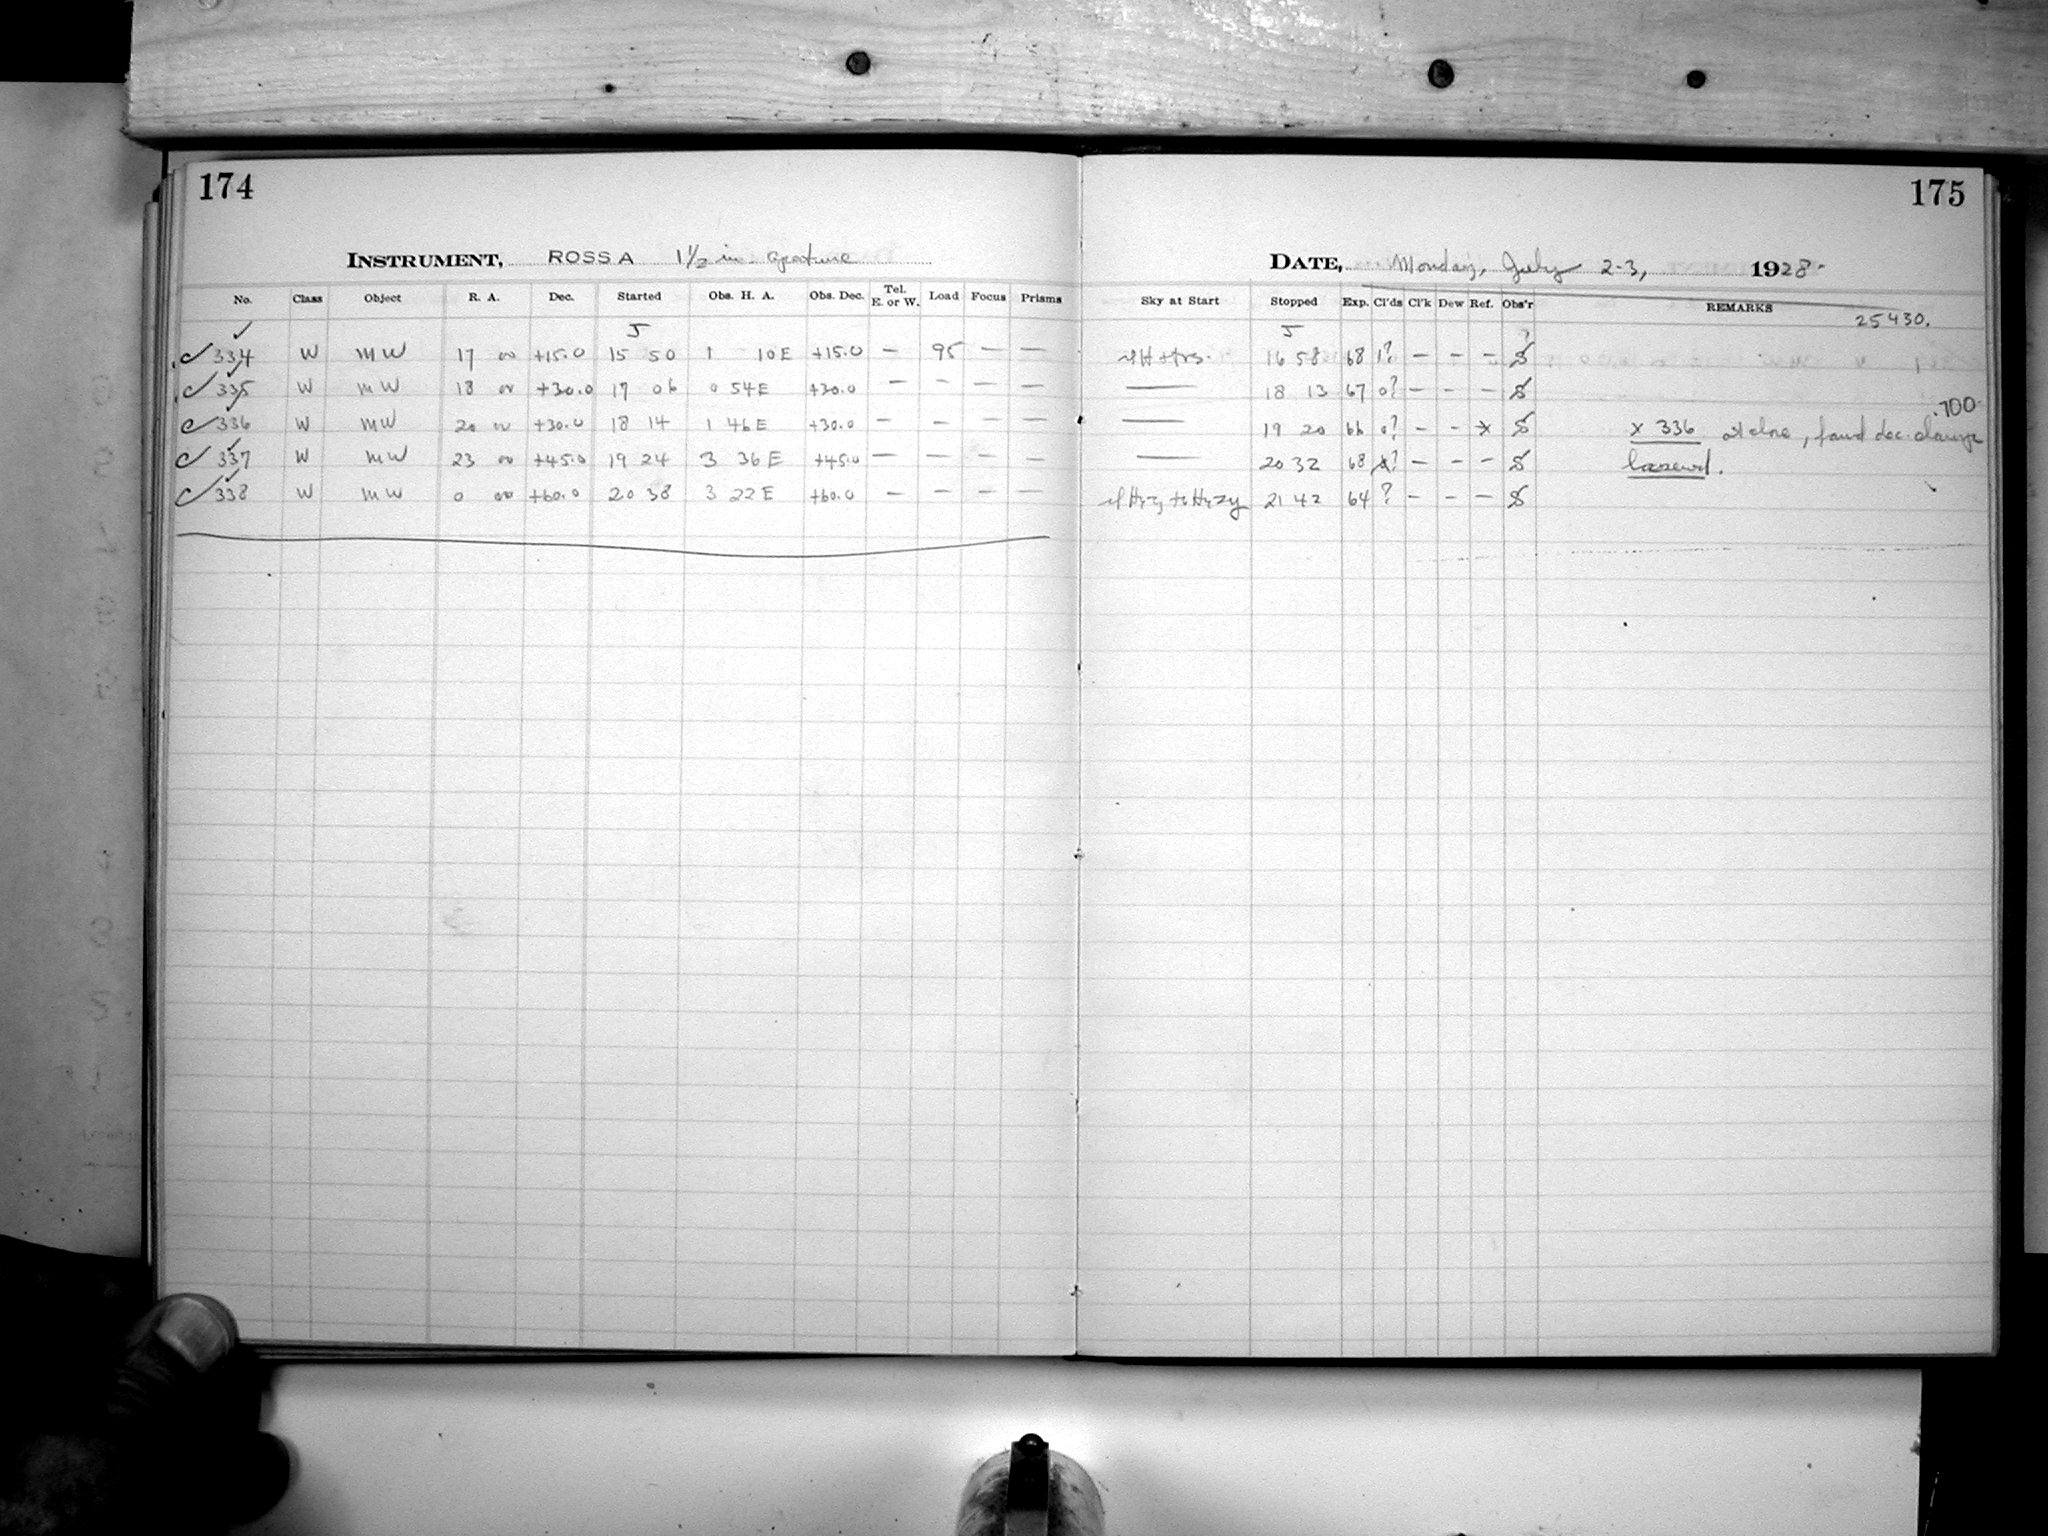 174
INSTRUMENT, ROSS A 1½ in. aperture
No. Class Object R. A. Dec. Started Obs. H. A. Obs. Dec. Tel. E. or W. Load Focus Prisms
J
334 W MW 17 00 +15.0 15 50 1 10 E +15.0 — 95 — —
335 W MW 18 00 +30.0 17 06 0 54 E +30.0 — — — —
336 W MW 20 00 +30.0 18 14 1 46 E +30.0 — — — —
337 W MW 23 00 +45.0 19 24 3 36 E +45.0 — — — —
338 W MW 0 00 +60.0 20 38 3 22 E +60.0 — — — —
175
DATE, Monday, July 2-3, 1928
Sky at Start Stopped Exp. Cl'ds Cl'k Dew Ref. Obs'r REMARKS
J 25430.
16 58 68 1? — — — S
—— 18 13 67 0? — — — S
.700
—— 19 20 66 0? — — x S x 336 at close, found dec. clamp
—— 20 32 68 ? — — — S loosened.
21 42 64 ? — — — S